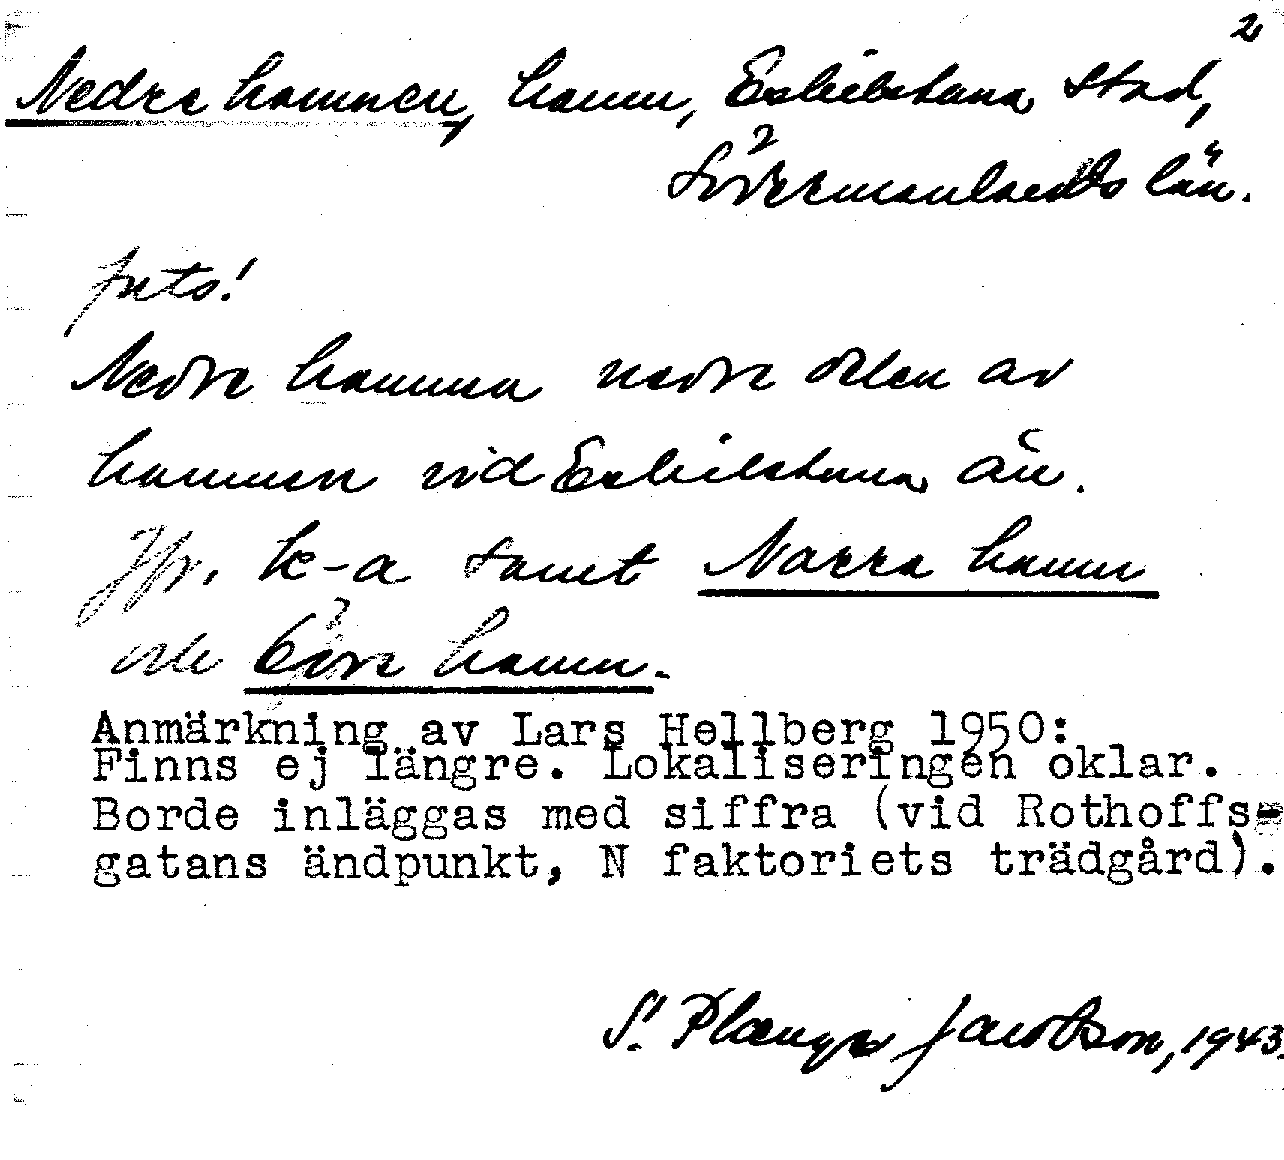 2
Nedre hamnen, hamn, Eskilstuna stad,
Södermanlands län.
Nedre hamnen nedre delen av
hamnen vid Eskilstuna ån.
Jfr. k-a samt Norra hamn
och Övre hamn.
Anmärkning av Lars Hellberg 1950:
Finns ej längre. Lokaliseringen oklar.
Borde inläggas med siffra (vid Rothoffs-
gatans ändpunkt, N faktoriets trädgård).
S. Jacobson, 1943.